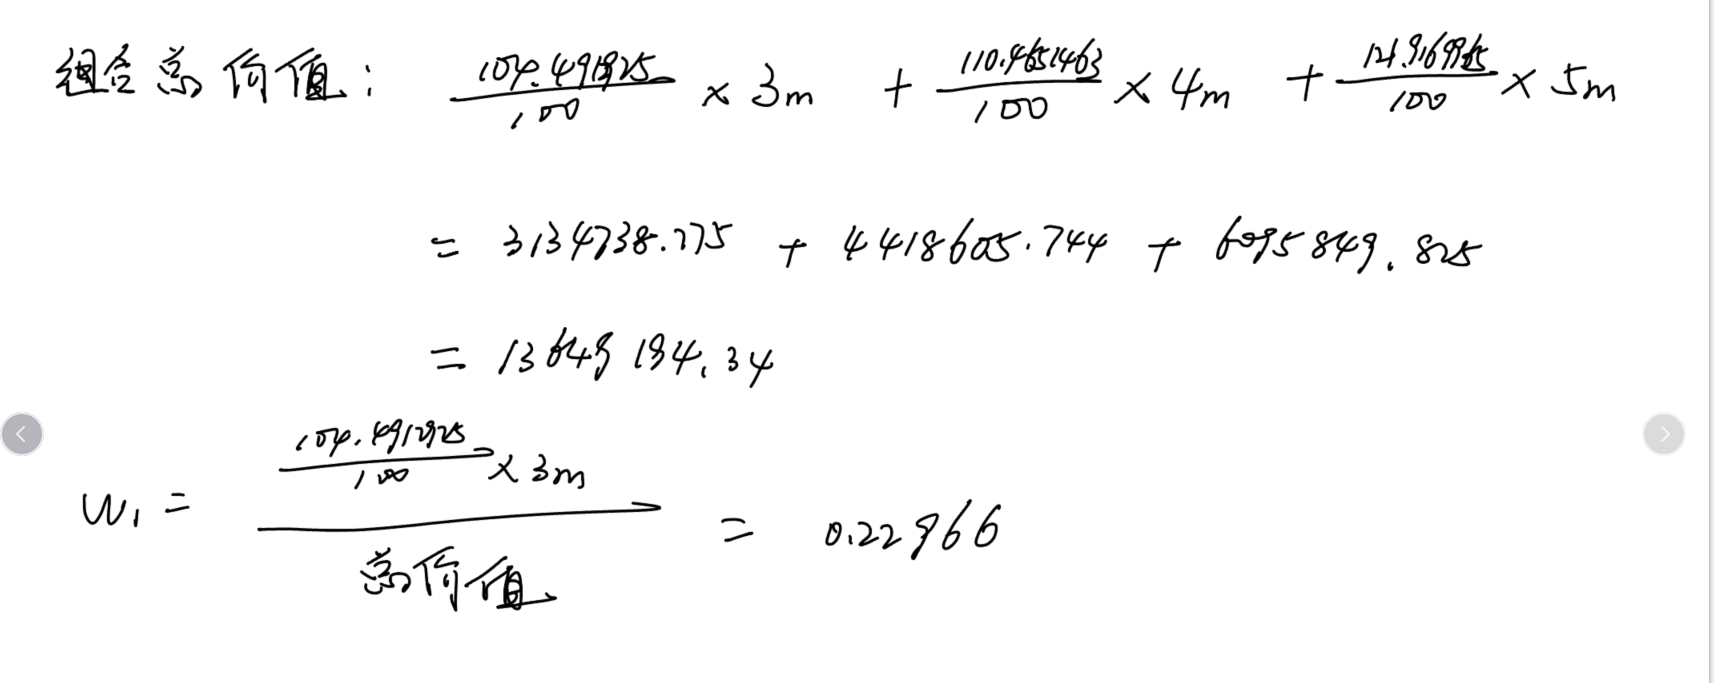 组合总价值: 104.4912925/100 × 3m + 110.4651463/100 × 4m + 121.9169965/100 × 5m
= 3134738.775 + 4418605.744 + 6095849.825
= 13649194.34
W₁ = (104.4912925/100 × 3m)/总价值 = 0.22966